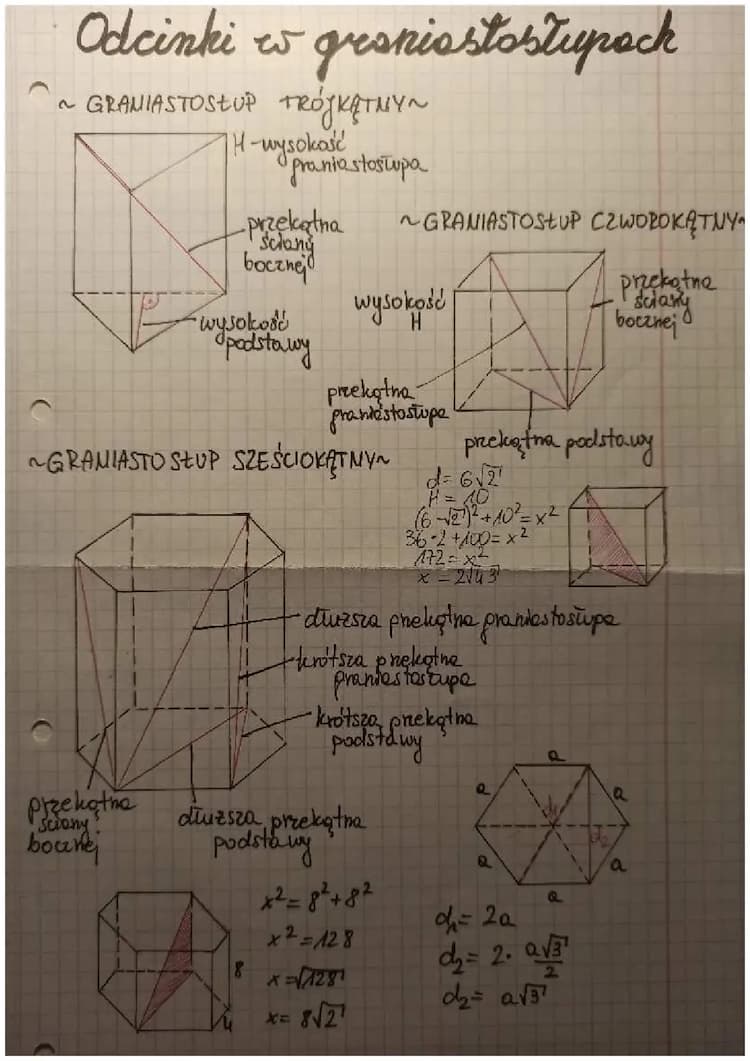 Odcinki w graniastosłupach
~ GRANIASTOSŁUP TRÓJKĄTNY ~
H - wysokość
graniastosłupa
przekątna
ściany
bocznej
wysokość
podstawy
~ GRANIASTOSŁUP CZWOROKĄTNY ~
wysokość
H
przekątna
ściany
bocznej
przekątna
graniastosłupa
przekątna podstawy
~ GRANIASTOSŁUP SZEŚCIOKĄTNY ~
d = 6√2
H = 10
(6√2)² + 10² = x²
36·2 + 100 = x²
172 = x²
x = 2√43
dłuższa przekątna graniastosłupa
krótsza przekątna
graniastosłupa
krótsza przekątna
podstawy
przekątna
ściany
bocznej
dłuższa przekątna
podstawy
a
a
a
d₁
d₂
a
a
a
x² = 8² + 8²
x² = 128
x = √128
x = 8√2
8
4
d₁ = 2a
d₂ = 2· a√3/2
d₂ = a√3